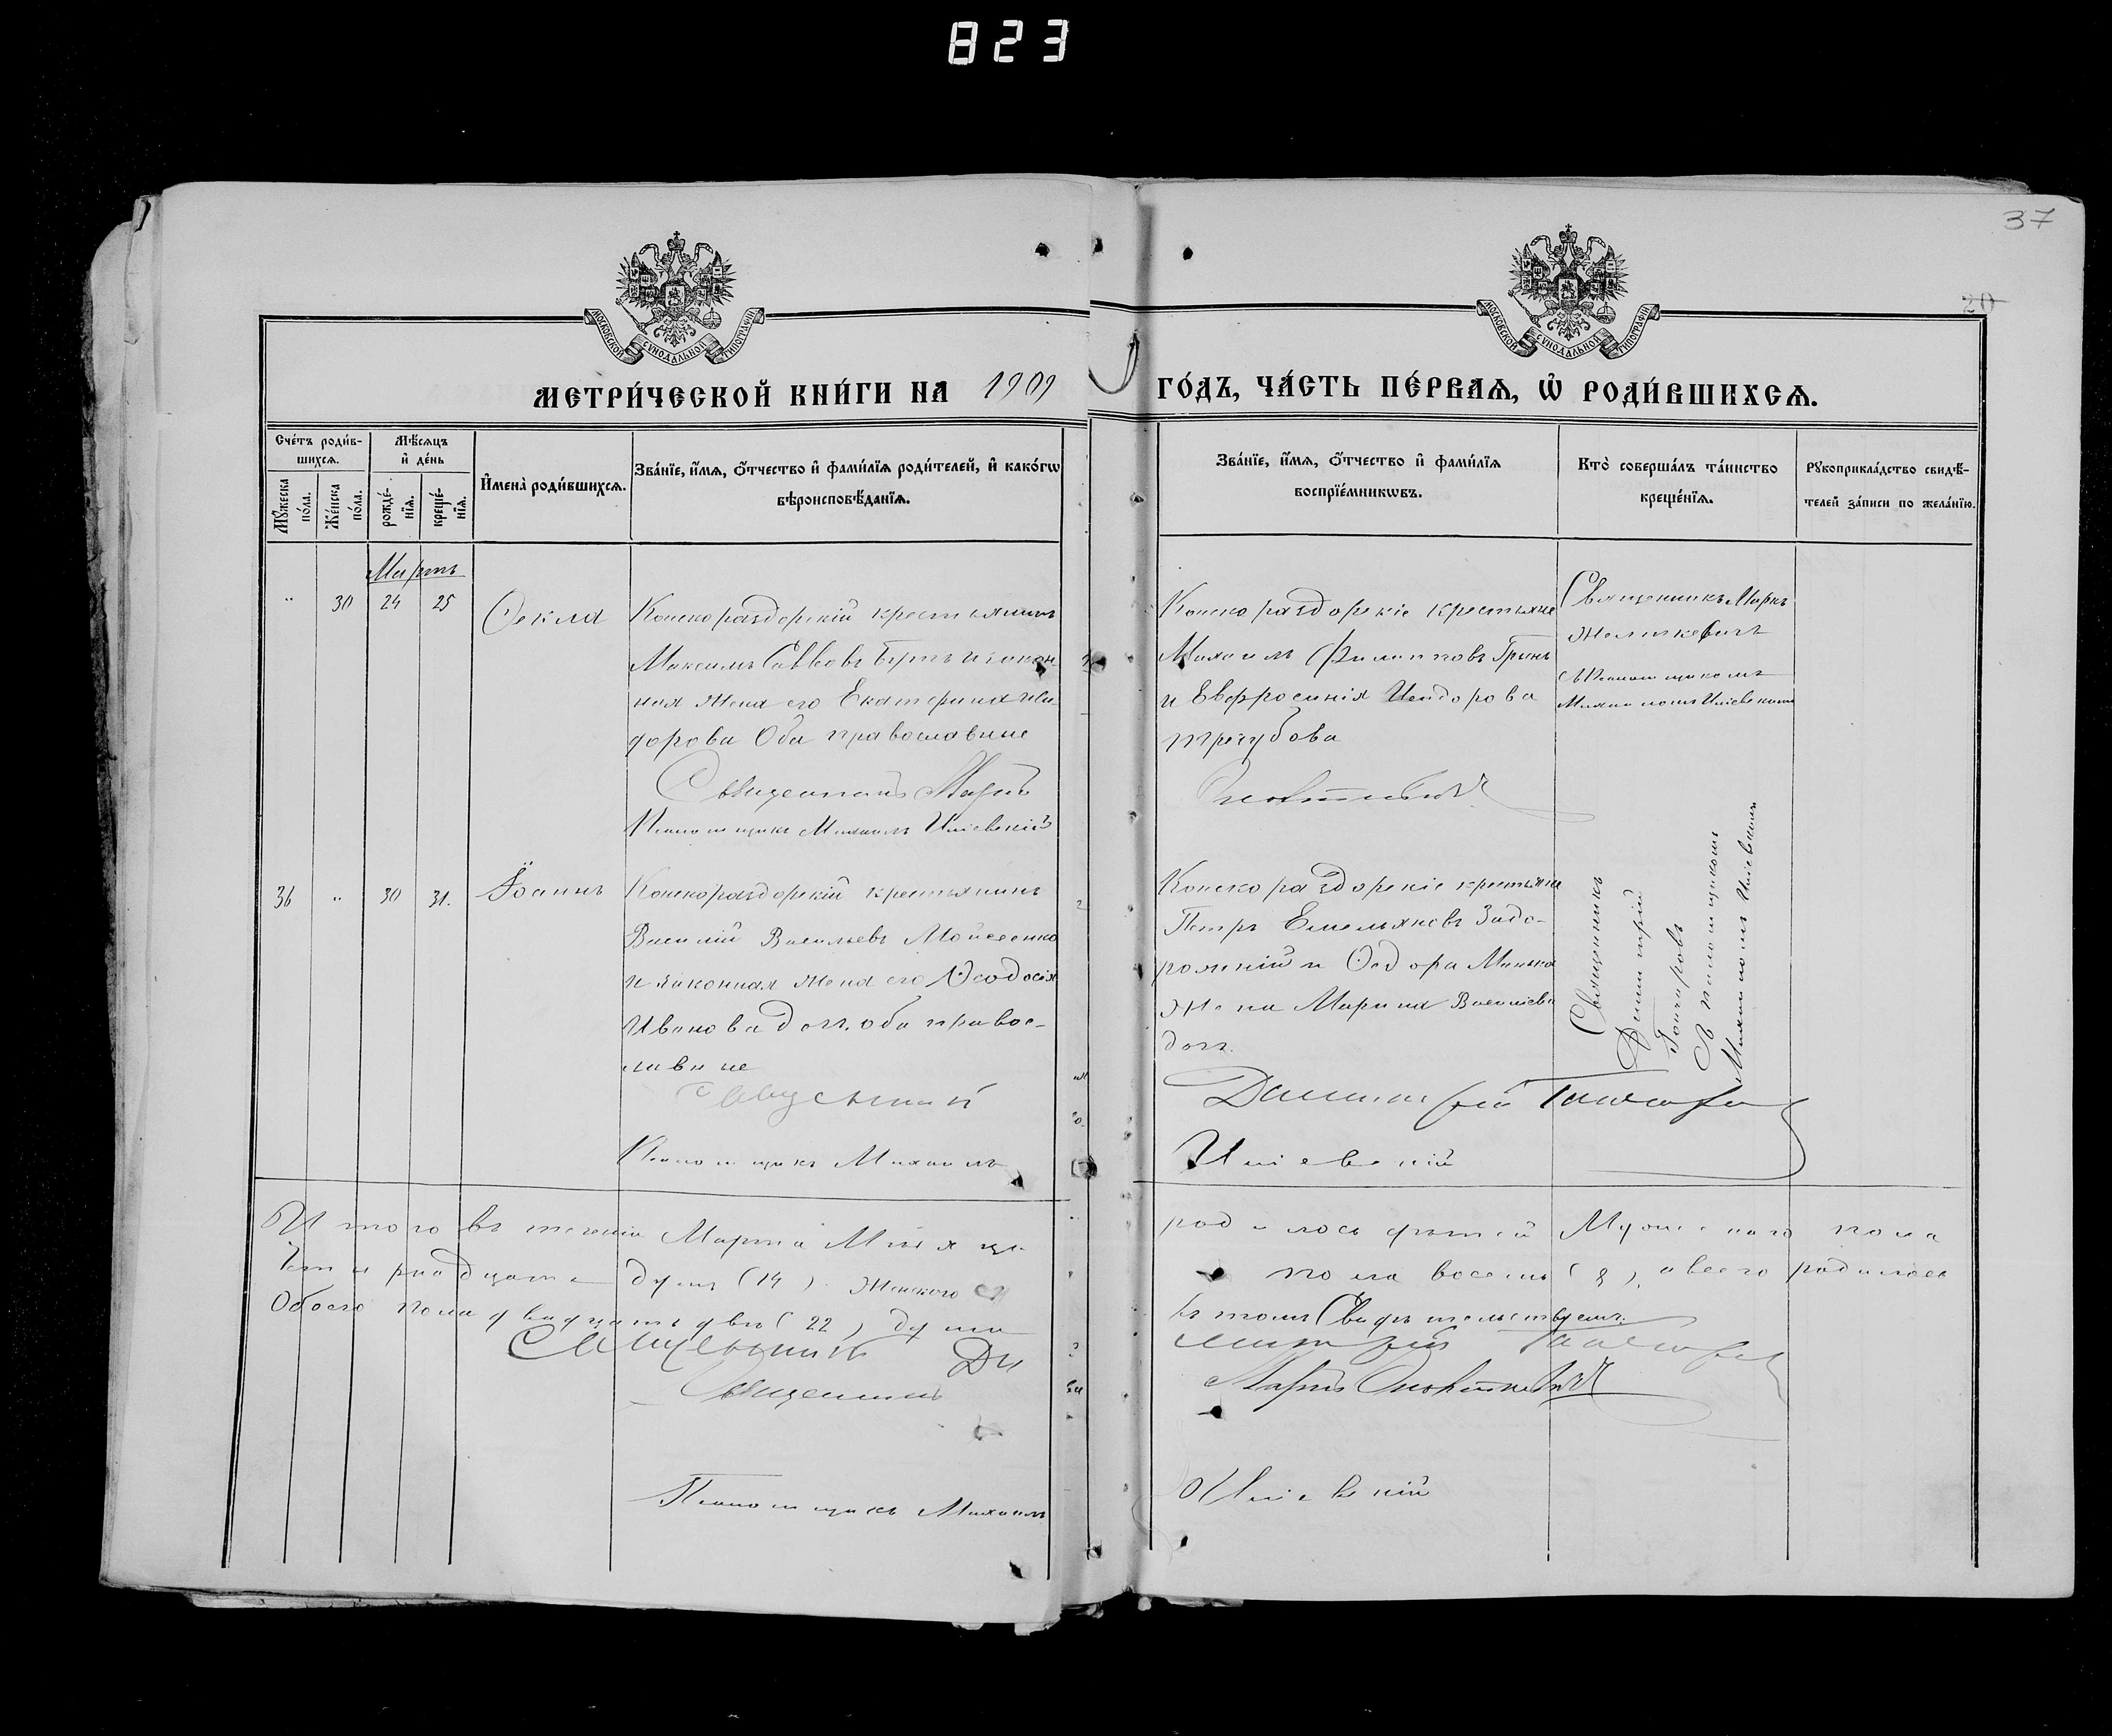 823
37
20
МОСКОВСКОЙ СѴНОДАЛЬНОЙ ТИПОГРАФІИ
МОСКОВСКОЙ СѴНОДАЛЬНОЙ ТИПОГРАФІИ
МЕТРИ́ЧЕСКОЙ КНИ́ГИ НА 1909 ГО́ДЪ, ЧА́СТЬ ПЕ́РВАѦ, Ѽ РОДИ́ВШИХСѦ.
Сче́тъ роди́в-
шихсѧ.
Мꙋ́жеска по́ла.
Же́нска по́ла.
Мѣ́сѧцъ
и҆ де́нь
рожде́-
нїѧ.
креще́-
нїѧ.
И҆мена̀ роди́вшихсѧ.
Зва́нїе, и҆́мѧ, ѻ҆́тчество и҆ фами́лїѧ роди́телей, и҆ како́гѡ
вѣроисповѣ́данїѧ.
Зва́нїе, и҆́мѧ, ѻ҆́тчество и҆ фами́лїѧ
воспрїе́мникѡвъ.
Кто̀ соверша́лъ та́инство
креще́нїѧ.
Рꙋкоприкла́дство свидѣ́-
телей за́писи по жела́нїю.
Мартъ
" 30 24 25 Ѳекла
Конскораздорскій крестьянинъ
Максимъ Саввовъ Бутъ и закон-
ная жена его Екатерина Иси-
дорова Оба православные
Священникъ Маркъ
Псаломщикъ Михаилъ
Конскораздорскіе крестьяне
Михаилъ Филипповъ Гринь
и Евфросинія Исидорова
Трегубова
Священникъ Маркъ
съ Псаломщикомъ
Михаиломъ
36 " 30 31. Іоаннъ
Конскораздорскій крестьянинъ
Василій Васильевъ Мойсеенко
и законная жена его Ѳеодосія
Иванова доч. оба правос-
лавные
Священникъ
Псаломщикъ Михаилъ
Конскораздорскіе крестьяне
Петръ Емельяновъ Задо-
рожній и Ѳедора Минька
жена Марина Васильева
доч.
Димитрій Гончаровъ
Священникъ
Димитрій
Гончаровъ
съ Псаломщикомъ
Михаиломъ
Итого въ теченіи Марта Мѣсяца родилось дѣтей Мужескаго пола
Четырнадцать душъ (14) Женского пола восемь (8), а всего родилось
Обоего пола двадцать двѣ (22) души въ томъ Свидѣтельствуемъ.
Священникъ Димитрій Гончаровъ
Священникъ Маркъ
Псаломщикъ Михаилъ